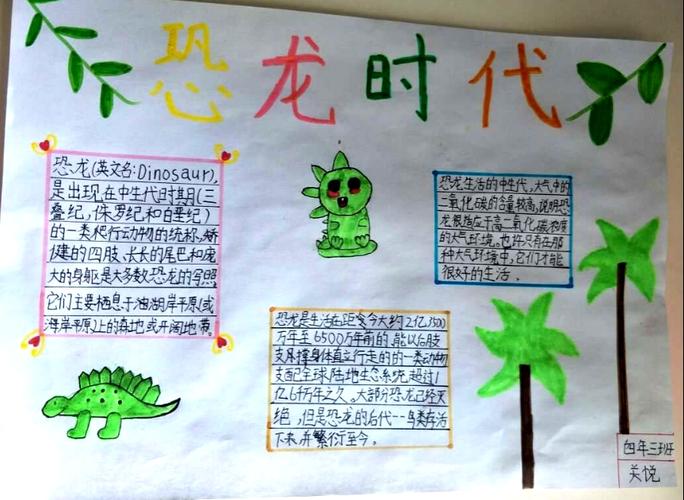 恐龙时代
恐龙(英文名:Dinosaur),
是出现在中生代时期(三
叠纪,侏罗纪和白垩纪)
的一类爬行动物的统称,矫
健的四肢、长长的尾巴和庞
大的身躯是大多数恐龙的写照。
它们主要栖息于湖岸平原(或
海岸平原)上的森地或开阔地带。
恐龙生活的中生代,大气中的
二氧化碳的含量较高,说明恐
龙很适应于高二氧化碳浓度
的大气环境。也许只有在那
种大气环境中,它们才能
很好的生活。
恐龙是生活在距今大约2亿3500
万年至6500万年前的,能以后肢
支撑身体直立行走的的一类动物
支配全球陆地生态系统超过1
亿6千万年之久。大部分恐龙已经灭
绝,但是恐龙的后代--鸟类存活
下来,并繁衍至今。
四年三班
关悦